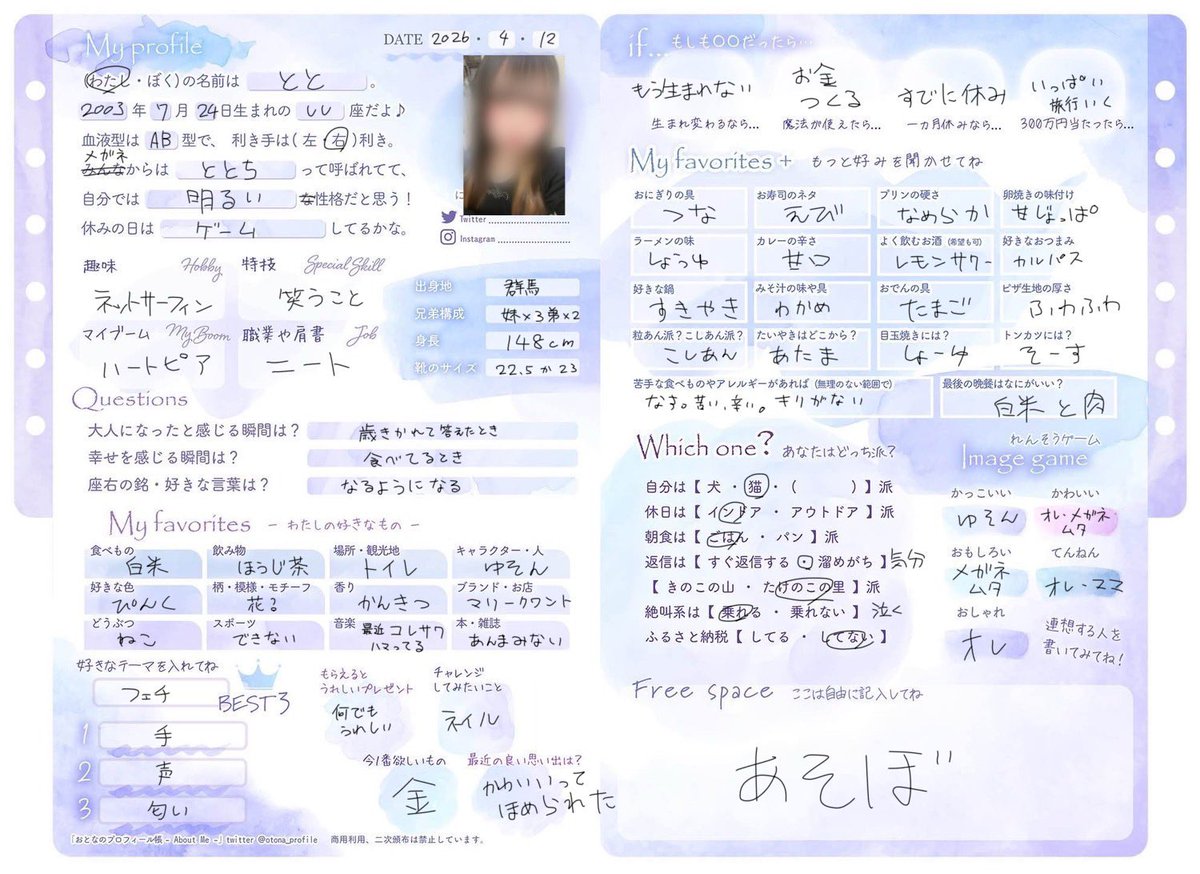 My profile
DATE 2026・4・12
(わたし・ぼく)の名前は とと 。
2003年 7月 24日生まれの しし 座だよ♪
血液型は AB 型で、 利き手は(左・右)利き。
メガネ
みんなからは ととち って呼ばれてて、
自分では 明るい な性格だと思う!
休みの日は ゲーム してるかな。
Twitter
Instagram
趣味 Hobby
ネットサーフィン
特技 Special Skill
笑うこと
マイブーム My Boom
ハートピア
職業や肩書 Job
ニート
出身地 群馬
兄弟構成 妹×3弟×2
身長 148cm
靴のサイズ 22.5か23
Questions
大人になったと感じる瞬間は? 歳きかれて答えたとき
幸せを感じる瞬間は? 食べてるとき
座右の銘・好きな言葉は? なるようになる
My favorites - わたしの好きなもの -
食べもの 白米
飲み物 ほうじ茶
場所・観光地 トイレ
キャラクター・人 ゆそん
好きな色 ぴんく
柄・模様・モチーフ 花る
香り かんきつ
ブランド・お店 マリークワント
どうぶつ ねこ
スポーツ できない
音楽 最近コレサワハマってる
本・雑誌 あんまみない
好きなテーマを入れてね
フェチ
BEST3
1 手
2 声
3 匂い
もらえるとうれしいプレゼント
何でもうれしい
チャレンジしてみたいこと
ネイル
今1番欲しいもの
金
最近の良い思い出は?
かわいいってほめられた
「おとなのプロフィール帳 - About Me -」twitter @otona_profile 商用利用、二次頒布は禁止しています。
if... もしも〇〇だったら…
もう生まれない
生まれ変わるなら…
お金つくる
魔法が使えたら…
すでに休み
一カ月休みなら…
いっぱい旅行いく
300万円当たったら…
My favorites + もっと好みを聞かせてね
おにぎりの具 つな
お寿司のネタ えび
プリンの硬さ なめらか
卵焼きの味付け 甘じょっぱ
ラーメンの味 しょうゆ
カレーの辛さ 甘口
よく飲むお酒(希望も可) レモンサワー
好きなおつまみ カルパス
好きな鍋 すきやき
みそ汁の味や具 わかめ
おでんの具 たまご
ピザ生地の厚さ ふわふわ
粒あん派?こしあん派? こしあん
たいやきはどこから? あたま
目玉焼きには? しょーゆ
トンカツには? そーす
苦手な食べものやアレルギーがあれば(無理のない範囲で)
なす。苦い、辛い。キリがない
最後の晩餐はなにがいい?
白米と肉
Which one? あなたはどっち派?
自分は【 犬 ・ 猫 ・ ( ) 】派
休日は【 インドア ・ アウトドア 】派
朝食は【 ごはん ・ パン 】派
返信は【 すぐ返信する ・ 溜めがち 】気分
【 きのこの山 ・ たけのこの里 】派
絶叫系は【 乗れる ・ 乗れない 】 泣く
ふるさと納税【 してる ・ してない 】
れんそうゲーム
Image game
かっこいい
ゆそん
かわいい
オレ・メガネ
ムタ
おもしろい
メガネ
ムタ
てんねん
オレ・ママ
おしゃれ
オレ
連想する人を
書いてみてね!
Free space ここは自由に記入してね
あそぼ